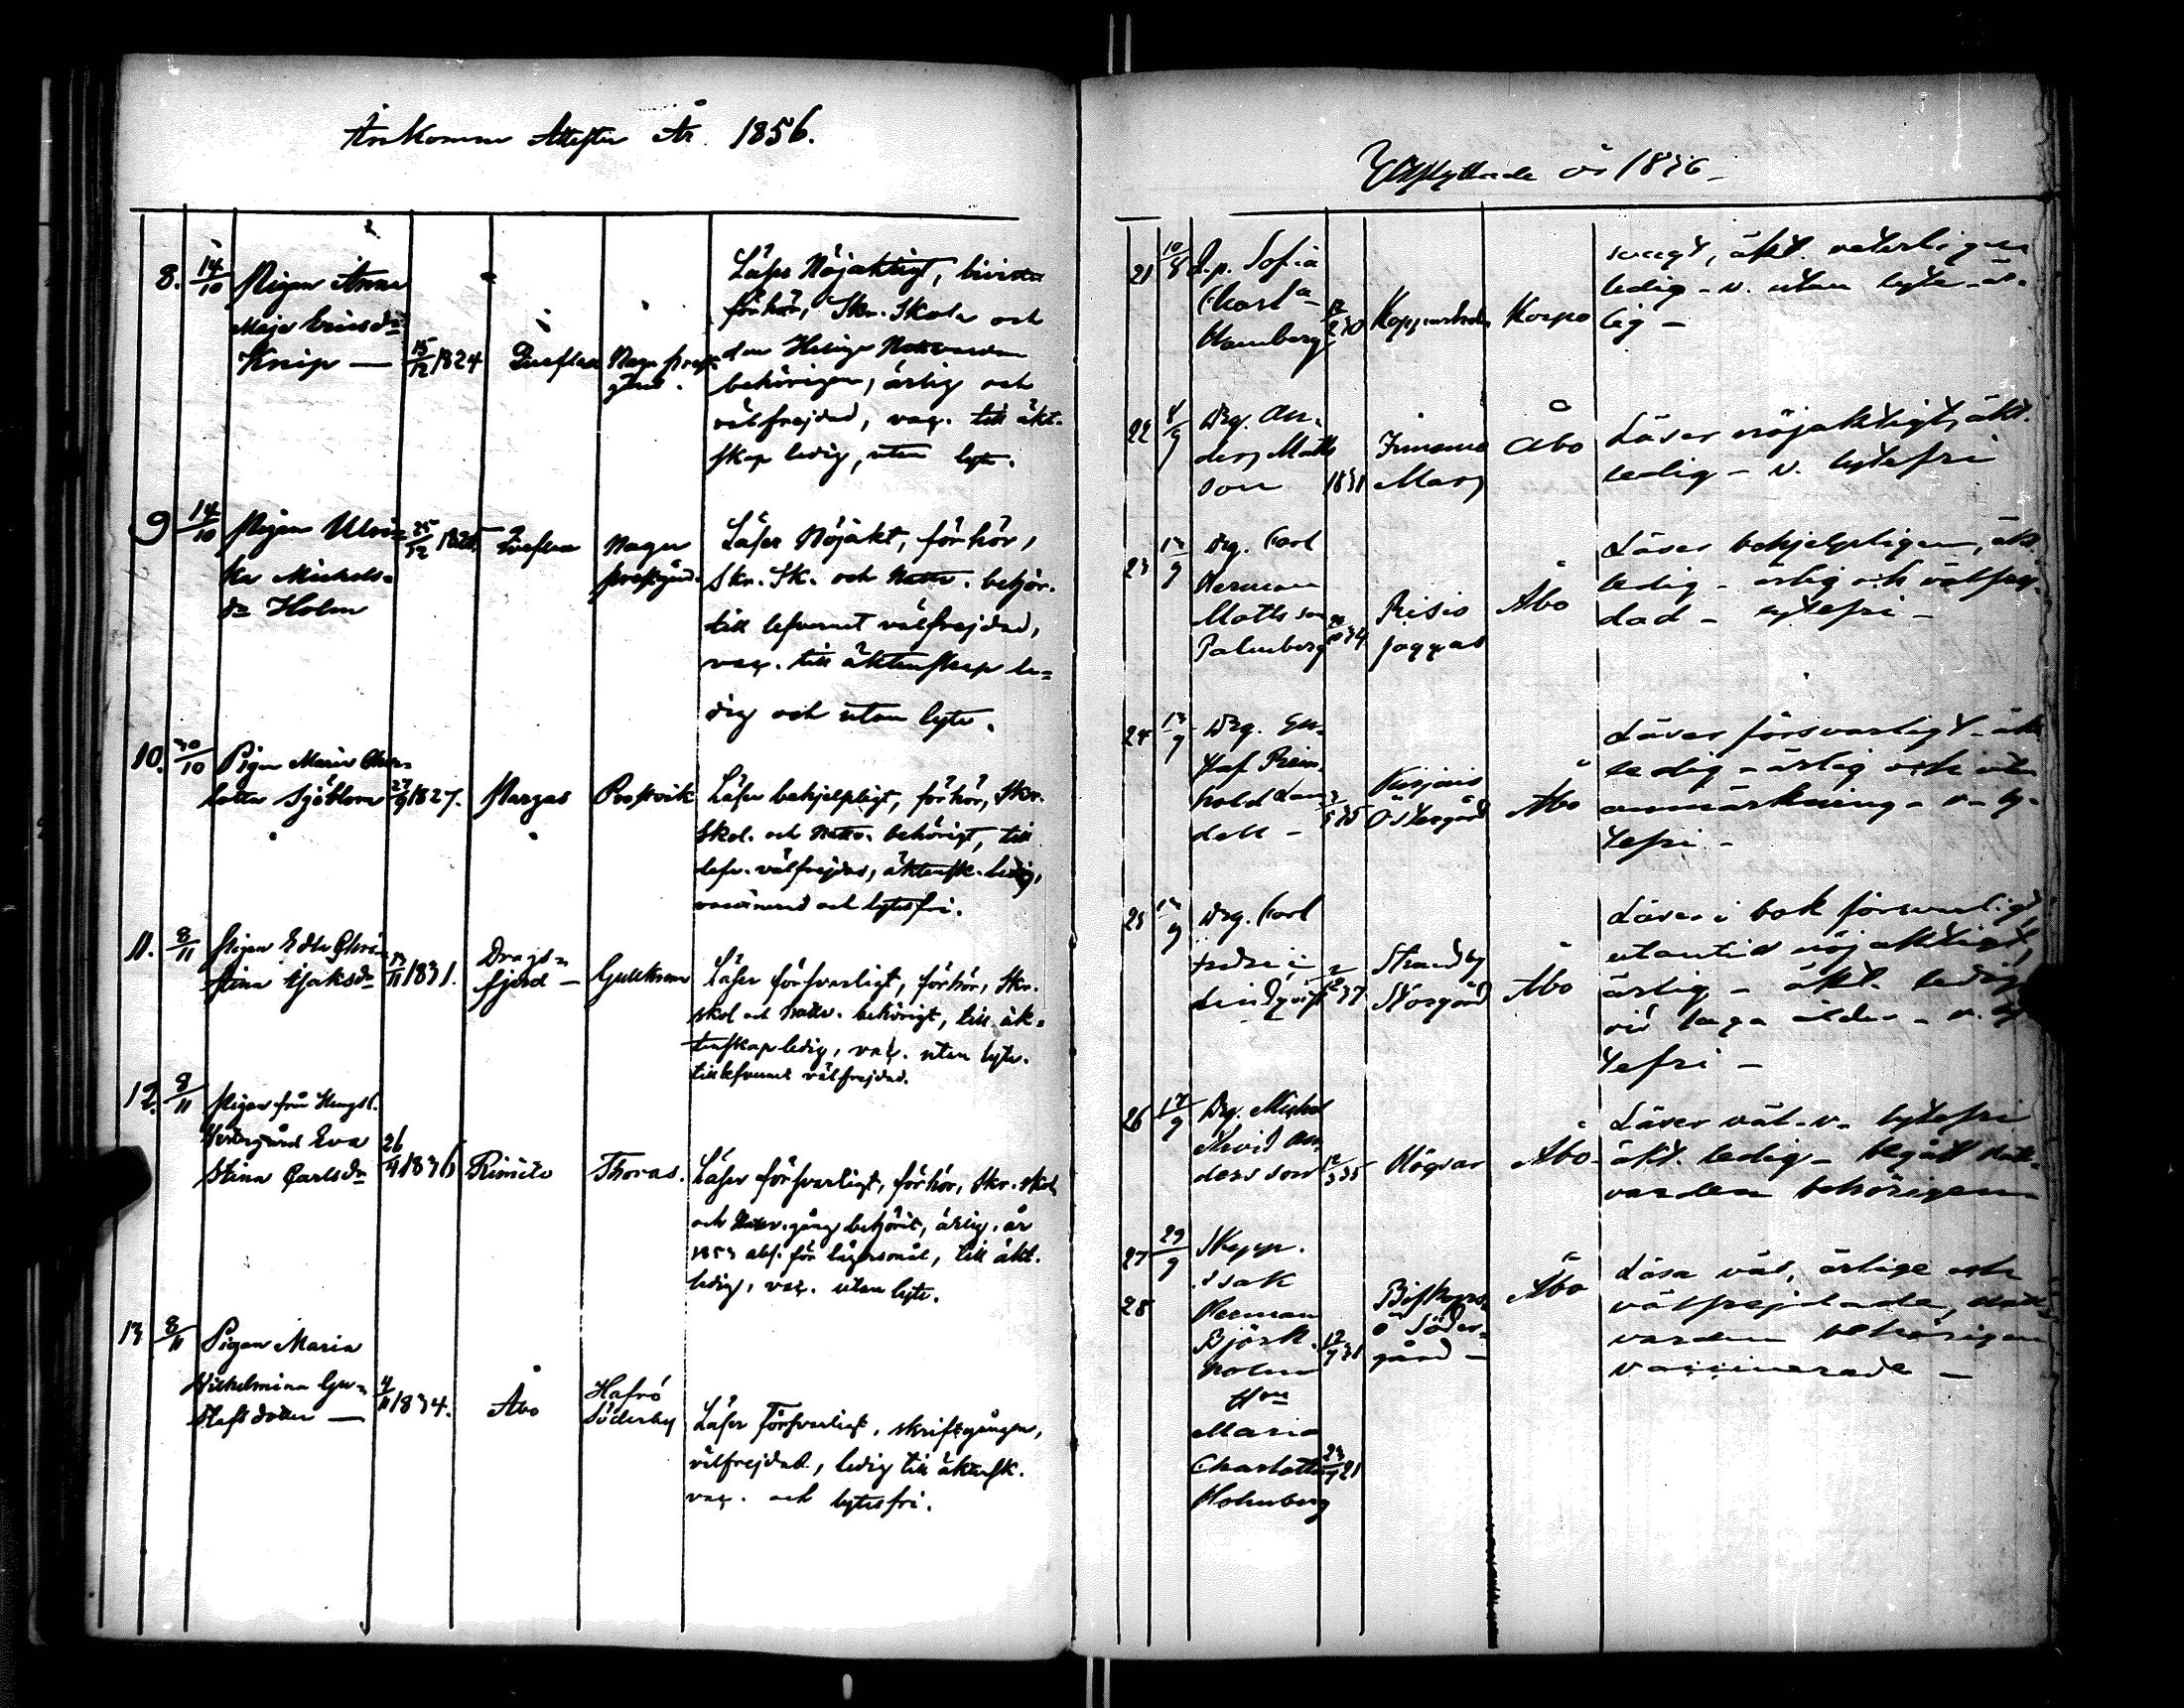 Ankomne Attester År 1856.
8. 14/10 Pigan Anna
Maja Ericsdr
Knip — 15/12 1824
Läser Nöjaktigt, bivistat
förhör, Skr. Skola och
den Heliga Nattvarden
behörigen, ärlig och
välfrejdad, vac. till äkt-
skap ledig, utan lyte.
9 14/10 Pigan Ulri-
ka Michels-
dr Holm
Nagu
prestgård.
Läser Nöjakt, förhör,
Skr. Sk. och Nattv. behör.
till lefvernet välfrejdad,
vac. till äktenskap le-
dig och utan lyte.
10. 30/10 Pigan Maria Char-
lotta Sjöblom 27/9 1827. Pargas Prostvik
Läser behjelpligt, förhör, Skr.
Skol. och Nattv. behörigt, till
lefv. välfrejdad, äktensk. ledig,
vaccinerad och lytesfri.
11. 8/11 Pigan Edla Chri-
stina Isaksdr 13/11 1831. Drags-
fjerd — Gyttja
Läser försvarligt, förhör, Skr.
skol och nattv. behörigt, till äk-
tenskap ledig, vac. utan lyte.
till lefvernet välfrejdad.
12. 8/11 Pigan från
Westergård Eva
Stina Carlsdr 26/4 1836 Rimito Thoras.
Läser försvarligt, förhör, Skr. skol
och Nattv. gång behörit, ärlig. år
1853 abs. för lägersmål, till äkt.
ledig, vac. utan lyte.
13 8/11 Pigan Maria
Wilhelmina Gu-
stafsdotter — 4/11 1834. Åbo Hafrö
Söderby
Läser Försvarligt, skriftgången,
välfrejdad, ledig till äktensk.
vac. och lytesfri.
Utflyttade år 1856 —
21 10/8 D.p. Sofia
Charl a
Hamberg 30 Korpo
svagt, äkt. veterligen
ledig — v. utan lyte — är-
lig —
22 Drg. An-
ders Matts
son 1831 Åbo
Läser nöjaktigt, äkt.
ledig — v. lytefri
23 13/9 Drg. Carl
Herman
Mattsson
Palmberg 34 Risis
Jaggas Åbo
Läser behjelpligen, äkt.
ledig — ärlig och välfrej-
dad — lytefri —
24 13/9 Drg. Gu-
staf Rein-
hold Lan
dell — 35
Östergård Åbo
Läser försvarligt — äkt
ledig — ärlig och utan
anmärkning — v — ly-
tefri —
25 Drg. Carl
Fredric
Lindqvist 37 Strandby
Storgård Åbo
Läser i bok försvarligt,
utantill nöjaktigt,
ärlig — äkt. ledig
vid laga ålder — v. ly
tefri —
26 17/9 Drg. Michel
Arvid An-
dersson 35 Högsar Åbo
Läser väl — v — lytefri
äkt. ledig — begått natt-
varden behörigen —
27 29/9 Skepp.
Isak
28 Herman
Björk-
holm 31 Biskops-
ö Söder-
gård — Åbo
Hu
Maria
Charlotta 21
Holmberg
Läsa väl, ärlige och
välfrejdade, natt-
varden behörigen
vaccinerade —